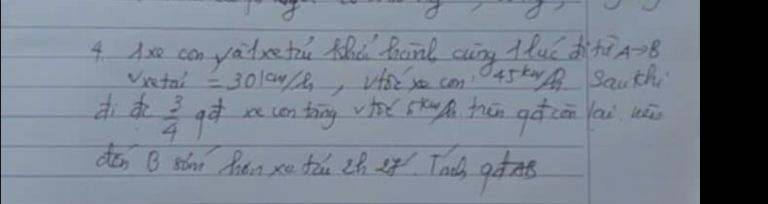 4. 1 xe con và 1 xe tải khởi hành cùng 1 lúc đi từ A→B
Vxe tải = 30 km/h, vtốc xe con 45 km/h. Sau khi
đi đc 3/4 qđ xe con tăng vtốc 5 km/h trên qđ còn lại. nên
đến B sớm hơn xe tải 2h 2' . Tính qđ AB